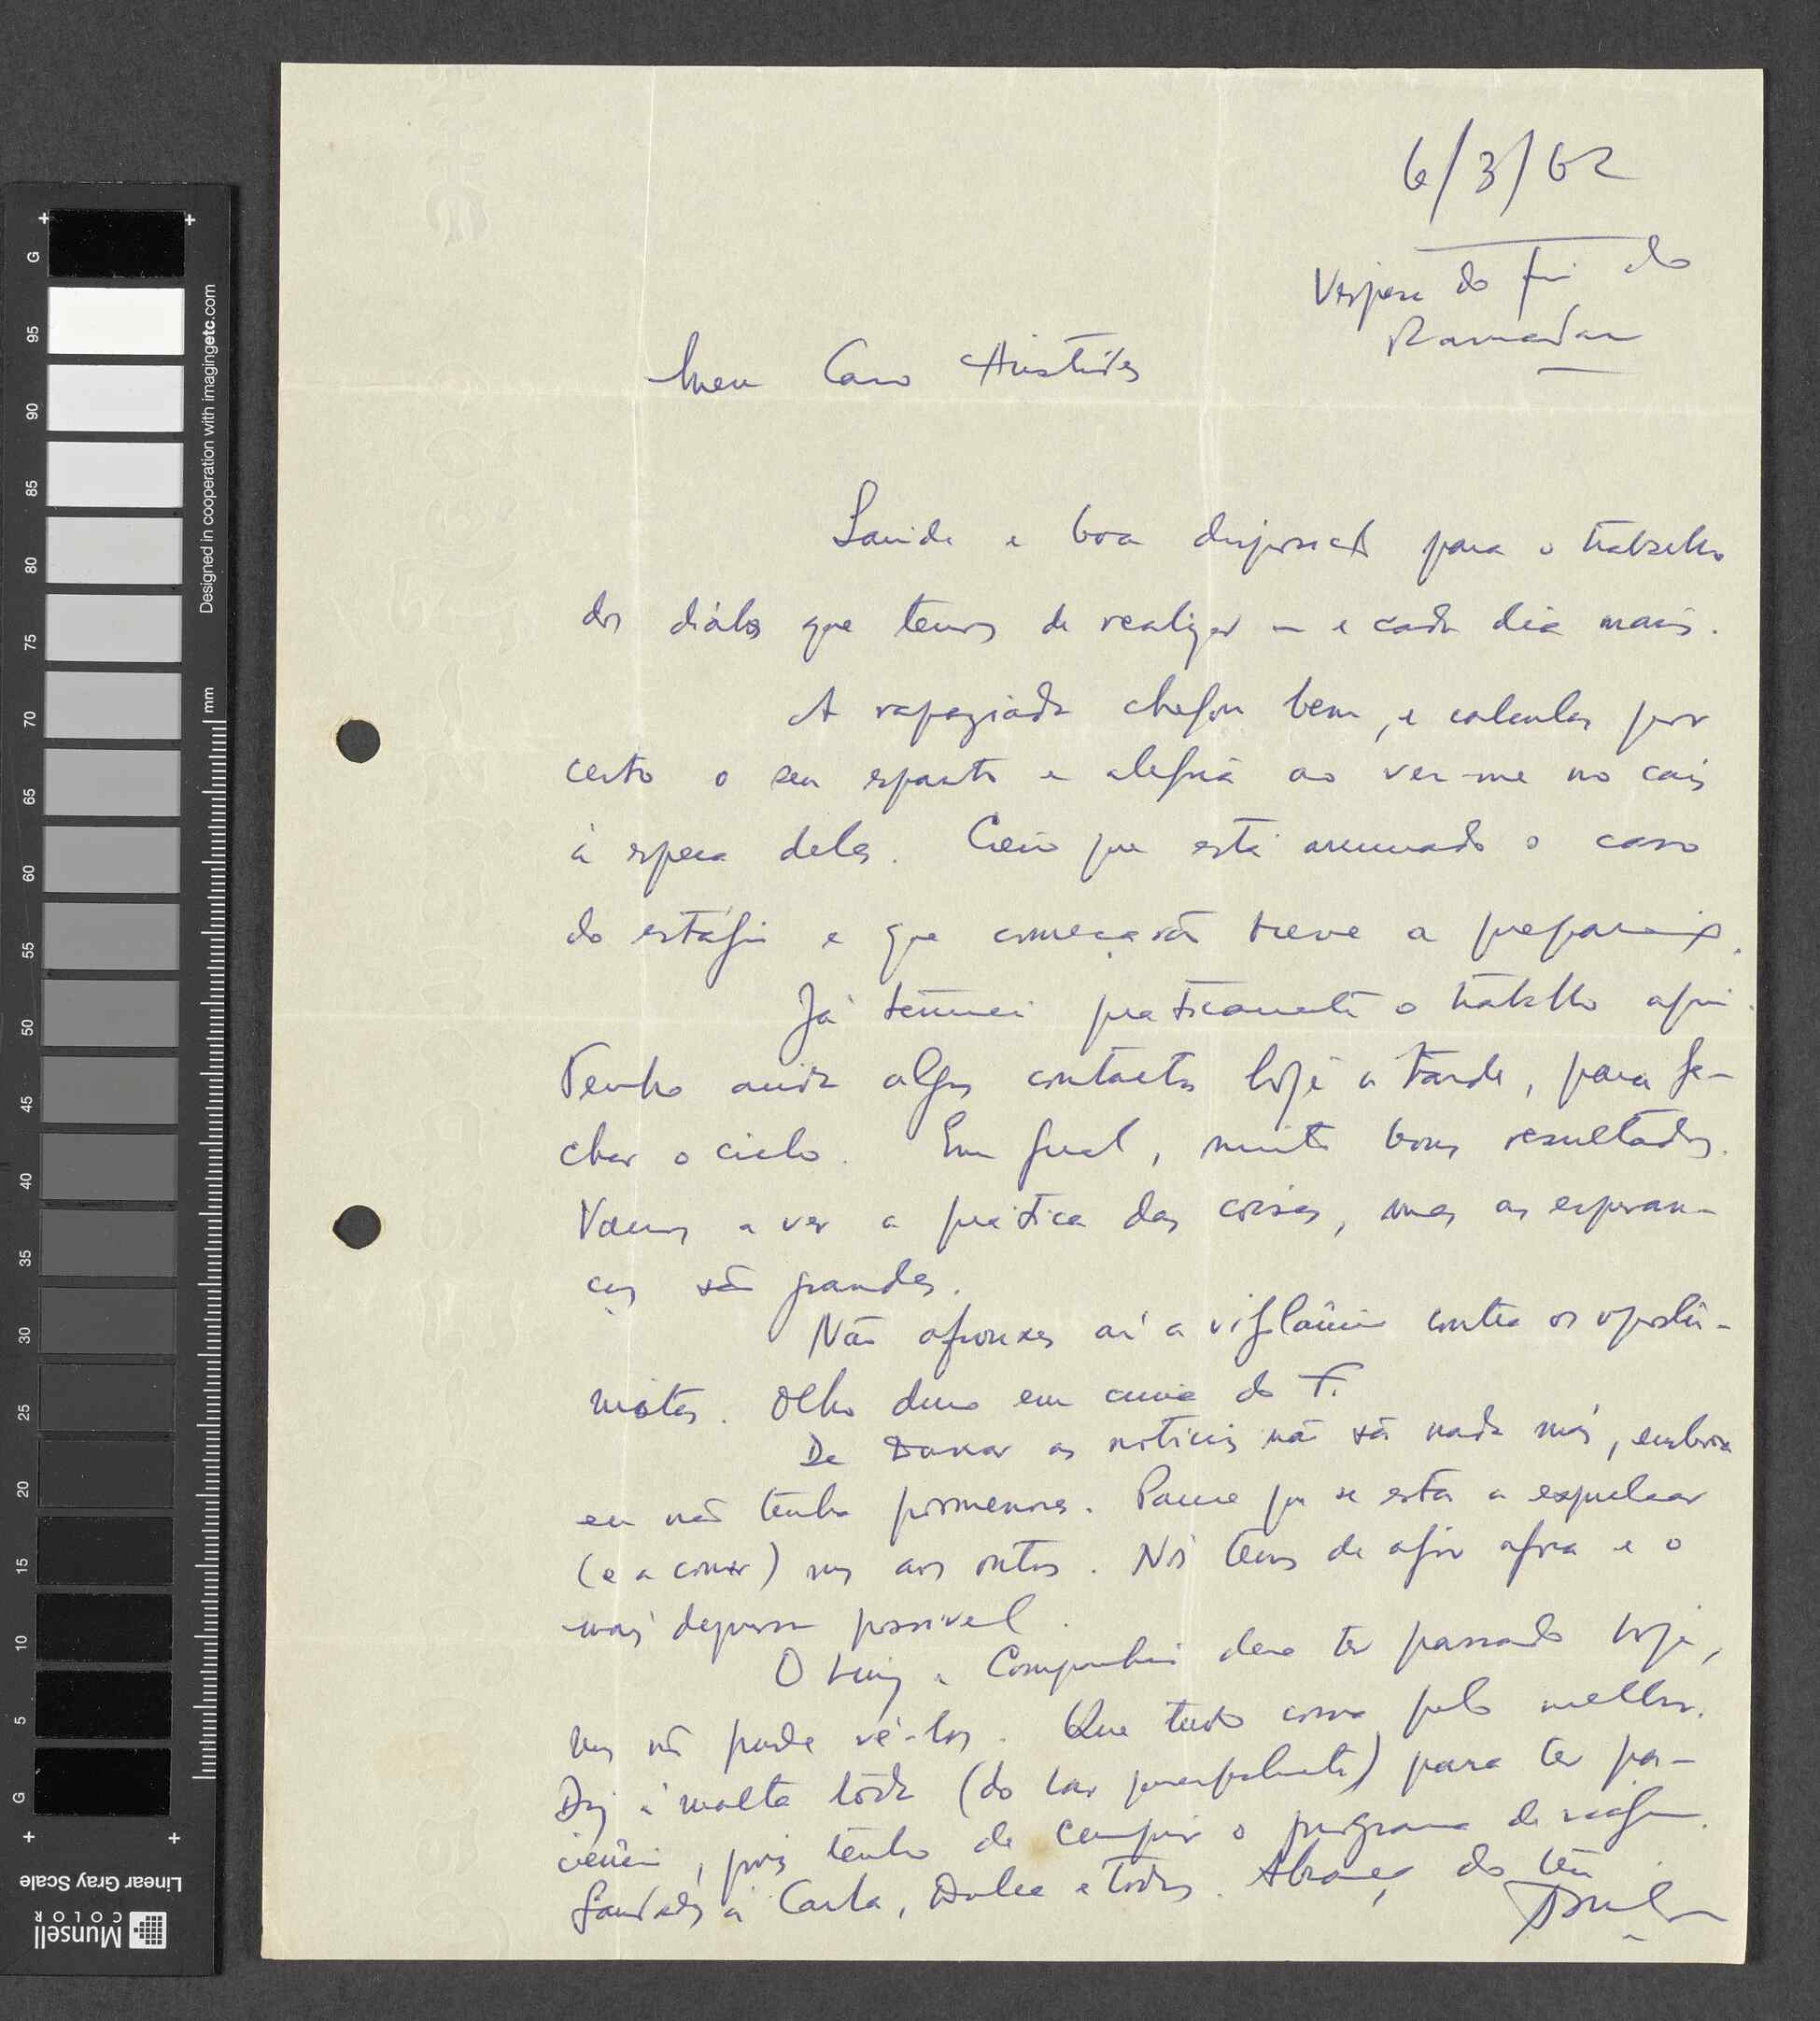 6/3/62
Vespera do fim do
Ramadan
Meu Caro Aristides
Saúde e boa disposição para o trabalho
dos diábos que temos de realizar — e cada dia mais.
A rapaziada chegou bem, e calculas por
certo o seu espanto e alegria ao ver-me no cais
à espera deles. Creio que está arrumado o caso
do estágio e que começarão breve a preparação.
Já terminei praticamente o trabalho aqui.
Tenho ainda alguns contactos hoje à tarde, para fe-
char o ciclo. Em geral, muito bons resultados.
Vamos a ver a prática das coisas, mas as esperan-
ças são grandes.
Não afrouxes aí a vigilância contra os oportu-
nistas. Olho duro em cima do F.
De Dakar as notícias não são nada más, embora
eu não tenha pormenores. Parece que se está a expulsar
(e a comer) uns aos outros. Nós temos de agir agora e o
mais depressa possível.
O Luiz e Companhia deve ter passado hoje,
mas não pude vê-los. Que tudo corra pelo melhor.
Diz à malta tôda (do Lar principalmente) para ter pa-
ciência, pois tenho de cumprir o programa de viagem.
Saudades à Carla, Dulce e todos. Abraço do teu